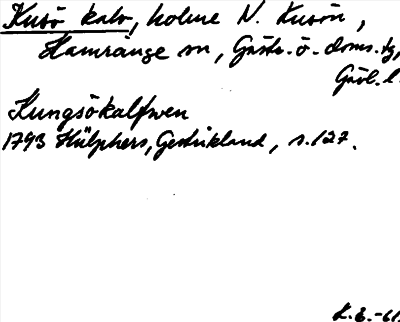 Kusö kalv, holme N. Kusön,
Hamrånge sn, Gästr. ö. doms.tg,
Gävl. l.
Kungsökalfwen
1793 Hülphers, Gestrikland, s. 127.
K.E.-61